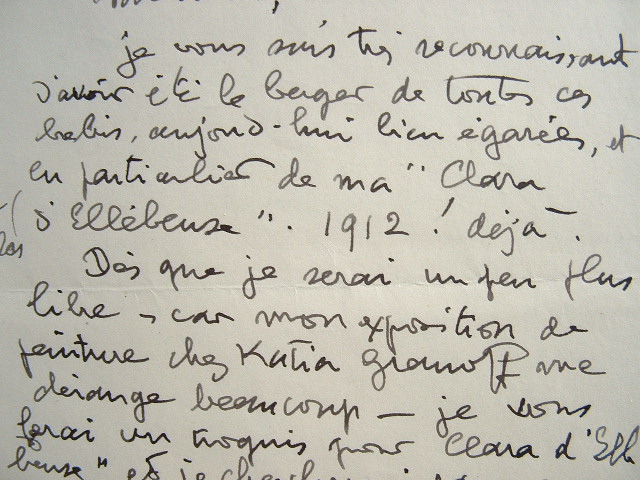 je vous suis très reconnaissant
d'avoir été le berger de toutes ces
brebis, aujourd-hui bien égarées, et
en particulier de ma "Clara
d'Ellébeuse". 1912 ! déjà.
Dès que je serai un peu plus
libre - car mon exposition de
peinture chez Katia Granoff me
dérange beaucoup — je vous
ferai un croquis pour Clara d'Ellé
beuse" et je